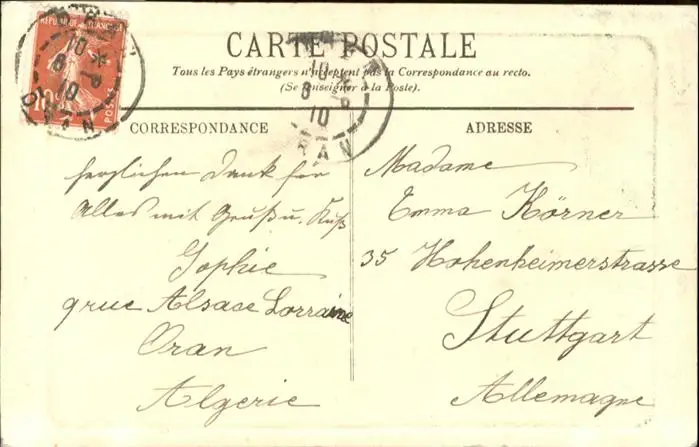 RÉPUBLIQUE FRANÇAISE
10
POSTES
CARTE POSTALE
Tous les Pays étrangers n'acceptent pas la Correspondance au recto.
(Se renseigner à la Poste).
CORRESPONDANCE
herzlichen Dank für
Alles mit Gruß u. Kuß
Sophie
9 rue Alsace Lorraine
Oran
Algerie
ADRESSE
Madame
Emma Körner
35 Hohenheimerstrasse
Stuttgart
Allemagne
10
8
10
ORAN